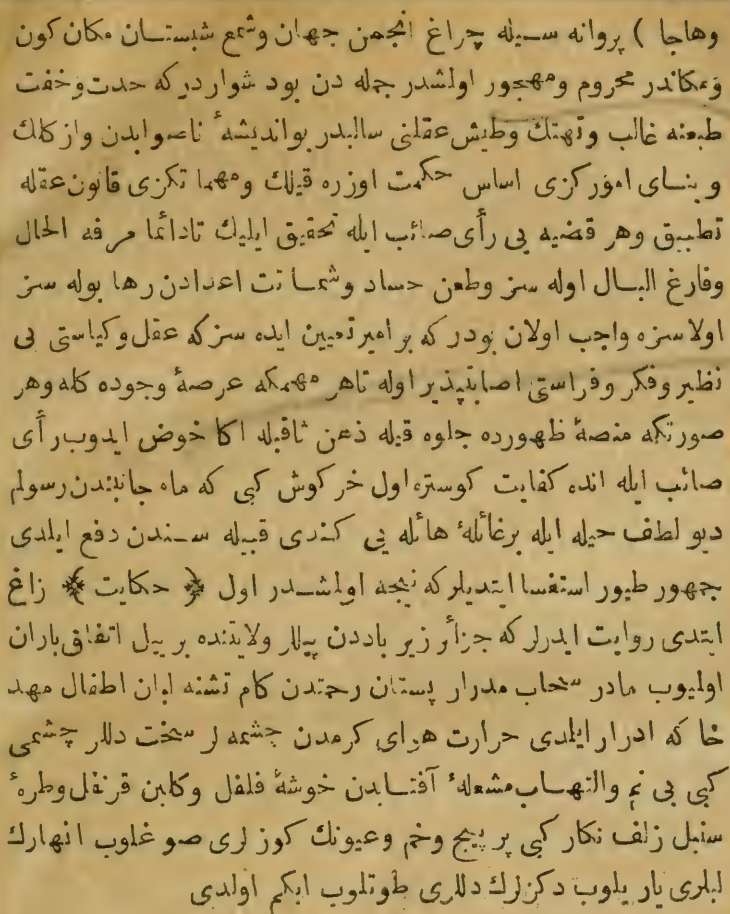 وهاجا ) پروانه سیله چراغ انجمن جهان وشمع شبستان مکان کون
ومکاندر محروم ومهجور اولمشدر جمله دن بود شواردرکه حدت وخفت
طبعنه غالب وتهتك وطیش عقلنی سالبدر بواندیشهٔ ناصوابدن وازکلك
و بنای امورکزی اساس حکمت اوزره قیلك ومهما تکزی قانون عقله
تطبیق وهر قضیه یی رأی صائب ایله تحقیق ایلیك تادائما مرفه الحال
وفارغ البال اوله سز وطعن حساد وشماتت اعدادن رها بوله سز
اولا سزه واجب اولان بودر که بر امیر تعیین ایده سزکه عقل وکیاستی بی
نظیر وفکر وفراستی اصابتپذیر اوله تاهر مهمکه عرصهٔ وجوده کله وهر
صورتکه منصهٔ ظهورده جلوه قیله ذهن ثاقبله اکا خوض ایدوب رأی
صائب ایله انده کفایت کوستره اول خرکوش کبی که ماه جانبندن رسولم
دیو لطف حیله ایله برغائلهٔ هائله یی کندی قبیله سندن دفع ایلدی
جمهور طیور استفسا ایتدیلرکه نیجه اولمشدر اول ﴿ حکایت ﴾ زاغ
ایتدی روایت ایدرلر که جزائر زیر باددن پیلار ولایتنده بر ییل اتفاق باران
اولیوب مادر سحاب مدرار پستان رحمتدن کام تشنه لبان اطفال مهد
خا که ادرار ایلدی حرارت هوای کرمدن چشمه لر سخت دللر چشمی
کبی بی نم والتهاب مشعلهٔ آفتابدن خوشهٔ فلفل وکلبن قرنفل وطرهٔ
سنبل زلف نکار کبی پر پیچ وخم وعیونك کوز لری صو غلوب انهارك
لبلری یار یلوب دکزلرك دللری طوتلوب ابکم اولدی